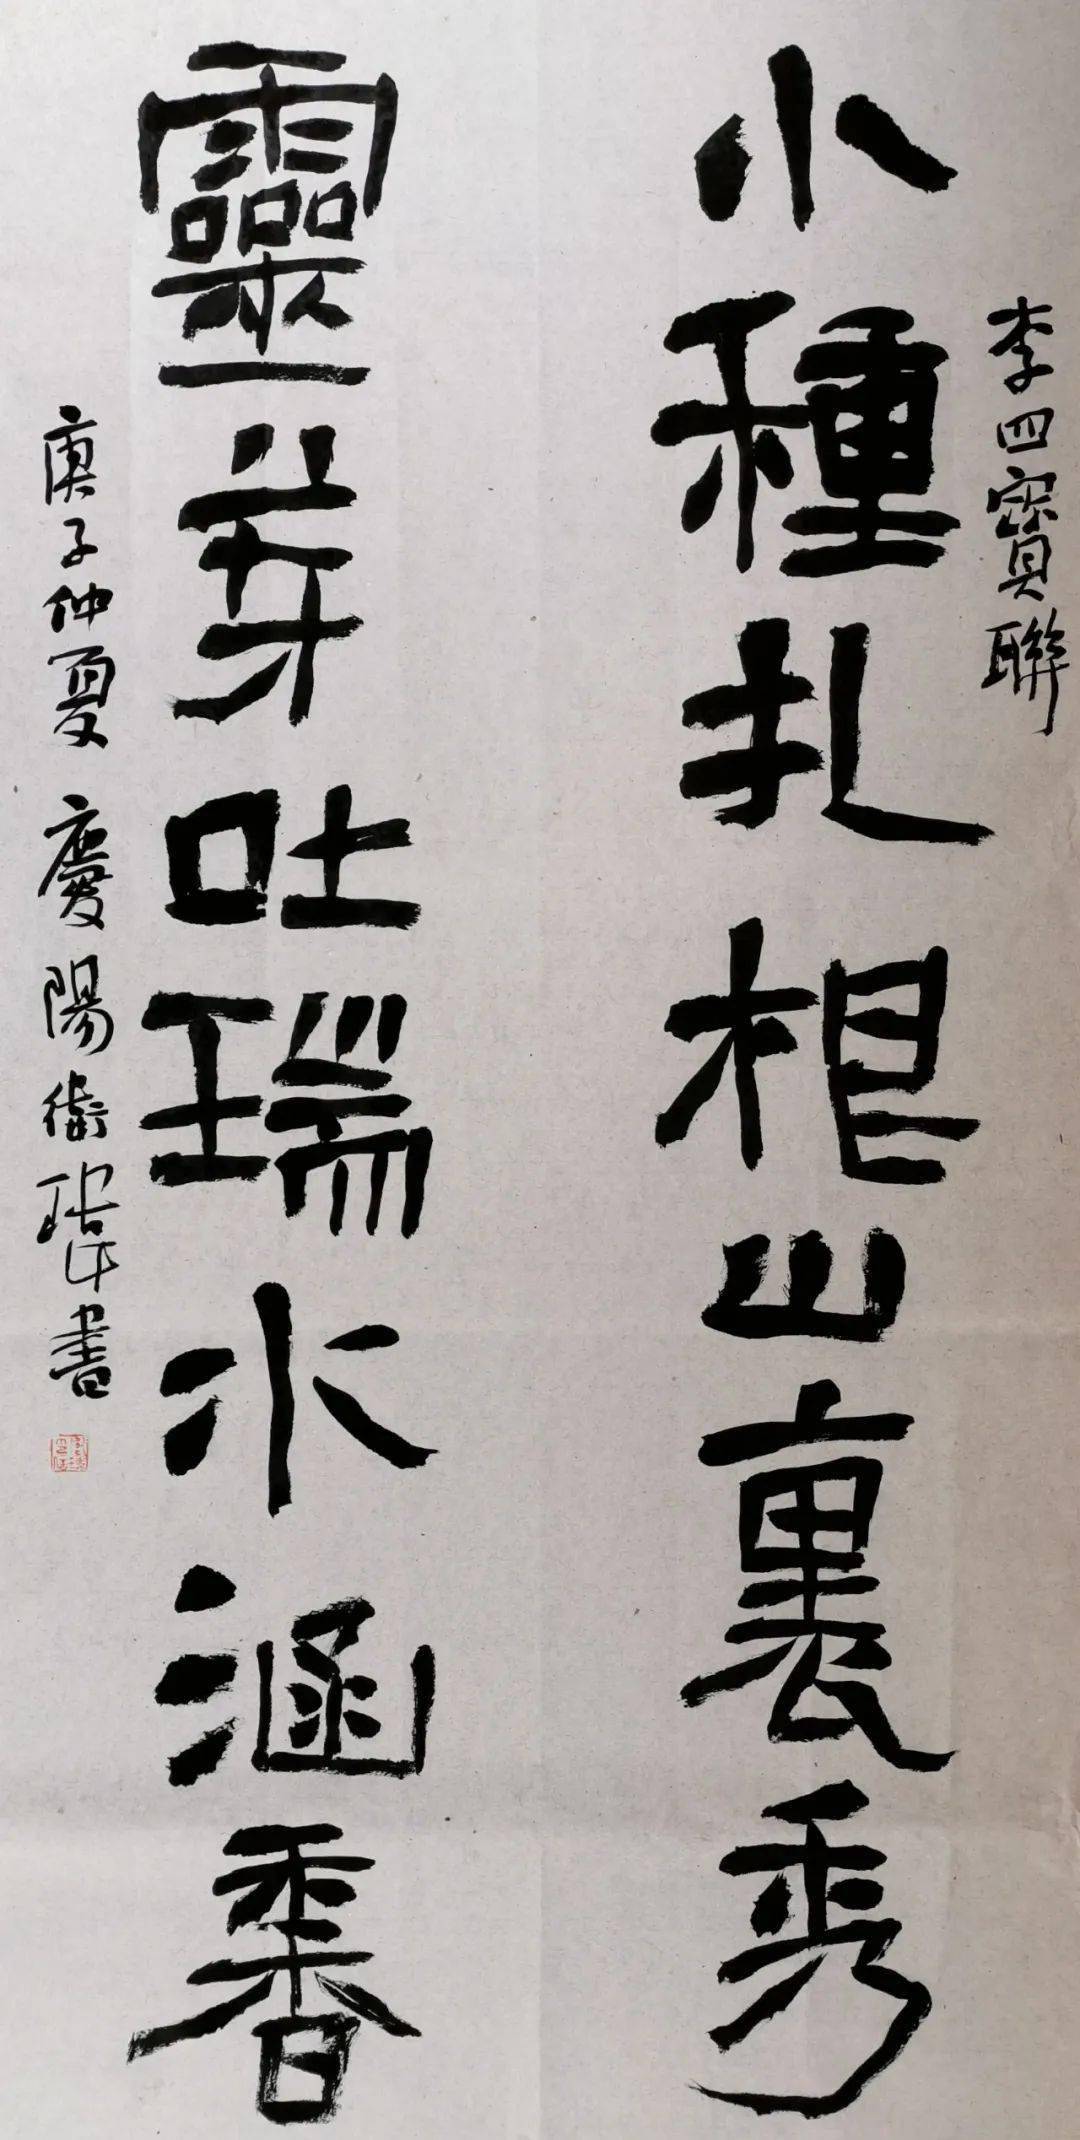 李四寳聯
小種扎根山裏秀
靈芽吐瑞水涵香
庚子仲夏慶陽衛
書